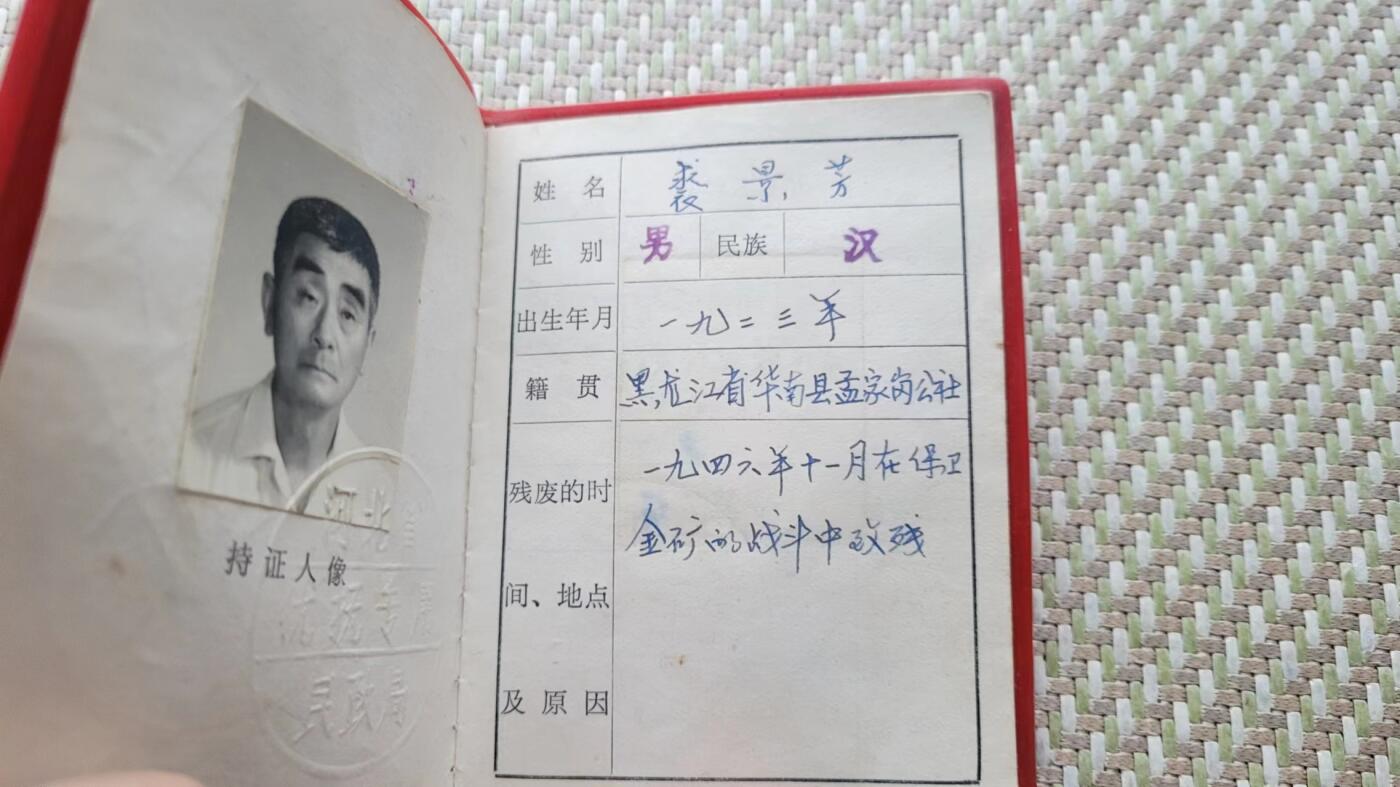 持证人像
河北省
优抚专用
民政局
姓 名 裘景芳
性 别 男 民族 汉
出生年月 一九二三年
籍 贯 黑龙江省华南县孟家岗公社
残废的时 一九四六年十一月在保卫
金矿的战斗中致残
间、地点
及原因